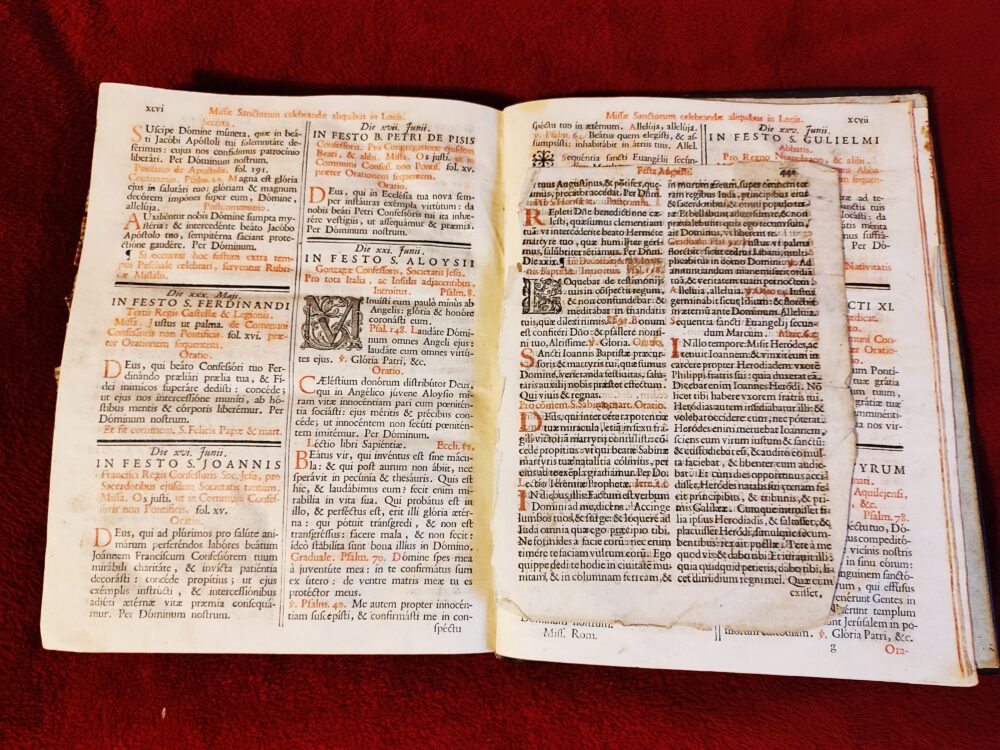 xcvi
Missæ Sanctorum celebrandæ aliquibus in Locis.
Secreta.
SUscipe Dómine múnera, quæ in beá-
ti Jacóbi Apóstoli tui solemnitáte de-
férimus: cujus nos confídimus patrocínio
liberári. Per Dóminum nostrum.
Præfatio de Apostolis. fol. 191.
Communio. Psalm. 20. Magna est glória
ejus in salutári tuo: glóriam & magnum
decórem impónes super eum, Dómine,
allelúja.
Postcommunio.
AUxiliéntur nobis Dómine sumpta my-
stéria: & intercedénte beáto Jacóbo
Apóstolo tuo, sempitérna fáciant prote-
ctióne gaudére. Per Dóminum.
¶ Si occurrat hoc festum extra tem-
pus Paschale celebrari, serventur Rubri-
cæ Missalis.
Die xxx. Maji.
IN FESTO S. FERDINANDI
Tertii Regis Castellæ & Legionis.
Missa. Justus ut palma. de Communi
Confessoris non Pontificis. fol. xvi. præ-
ter Orationem sequentem.
Oratio.
DEus, qui beáto Confessóri tuo Fer-
dinándo præliári prælia tua, & fí-
dei inimícos superáre dedísti: concéde;
ut ejus nos intercessióne muníti, ab hó-
stibus mentis & córporis liberémur. Per
Dóminum nostrum.
Et fit commem. S. Felicis Papæ & mart.
Die xvi. Junii.
IN FESTO S. JOANNIS
Francisci Regis Confessoris Soc. Jesu, pro
Sacerdotibus ejusdem Societatis tantum.
Missa. Os justi, ut in Communi Confes-
soris non Pontificis. fol. xv.
Oratio.
DEus, qui ad plúrimos pro salúte ani-
márum perferéndos labóres beátum
Joánnem Francíscum Confessórem tuum
mirábili charitáte, & invícta patiéntia
decorásti: concéde propítius; ut ejus
exémplis instrúcti, & intercessiónibus
adjúti ætérnæ vitæ præmia consequá-
mur. Per Dóminum nostrum.
Die xvii. Junii.
IN FESTO B. PETRI DE PISIS
Confessoris, Pro Congregatione ejusdem
Beati, & alibi. Missa. Os justi, ut in
Communi Confess. non Pontif. fol. xv.
præter Orationem sequentem.
Oratio.
DEus, qui in Ecclésia tua nova sem-
per instáuras exémpla virtútum: da
nobis beáti Petri Confessóris tui ita inhæ-
rére vestígiis, ut assequámur & præmia.
Per Dóminum.
Die xxi. Junii.
IN FESTO S. ALOYSII
Gonzagæ Confessoris, Societatis Jesu,
Pro tota Italia, ac Insulis adjacentibus.
Introitus. Psalm. 8.
MInuísti eum paulò minùs ab
Angelis: glória & honóre
coronásti eum.
Psal. 148. Laudáte Dómi-
num omnes Angeli ejus:
laudáte eum omnes virtú-
tes ejus. ℣. Glória Patri, &c.
Oratio.
CÆléstium donórum distribútor Deus,
qui in Angélico júvene Aloysio mi-
ram vitæ innocéntiam pari cum pœnitén-
tia sociásti: ejus méritis & précibus con-
céde; ut innocéntem non secúti pœniten-
tem imitémur. Per Dóminum.
Léctio libri Sapiéntiæ. Eccli. 31.
BEátus vir, qui invéntus est sine mácu-
la: & qui post aurum non ábiit, nec
sperávit in pecúnia & thesáuris. Quis est
hic, & laudábimus eum? fecit enim mi-
rabília in vita sua. Qui probátus est in
illo, & perféctus est, erit illi glória ætér-
na: qui pótuit tránsgredi, & non est
transgréssus: fácere mala, & non fecit:
ídeò stabilíta sunt bona illíus in Dómino.
Graduale. Psalm. 70. Dómine spes mea
à juventúte mea: in te confirmátus sum
ex útero: de ventre matris meæ tu es
protéctor meus.
℣. Psalm. 40. Me autem propter innocén-
tiam suscepísti, & confirmásti me in con-
spéctu
Missæ Sanctorum celebrandæ aliquibus in Locis. xcvii
spéctu tuo in ætérnum. Allelúja, allelúja.
℣. Psalm. 64. Beátus quem elegísti, & as-
sumpsísti: inhabitábit in átriis tuis, Allel.
Sequéntia sancti Evangélii secún-
Die xxv. Junii.
IN FESTO S. GULIELMI
Abbatis.
Pro Regno Neapolitano, & alibi.
Festa Augusti. 441
tuus Augustinus, & põtifex, quę-
sumus, precator accedat. Per Dñm.
REpleti Dñe benedictione cæ-
lesti, quæsumus clementiam
tuam: vt intercedente beato Hermete
martyre tuo, quæ humiliter géri-
mus, salubriter sétiamus. Per Dñm.
Die xxix.
nis Baptistæ. Introitus. Psal. 118.
LOquebar de testimonijs
tuis in cõspectu regum,
& non confundebar: &
meditabar in mandatis
tuis, quæ dilexi nimis. Psal. 91. Bonum
est confiteri Dño: & psallere nomini
tuo, Altissime. ℣. Gloria. Oratio.
SAncti Ioannis Baptistæ præcur-
soris & martyris tui, quæsumus
Dñe, veneranda festiuitas, salu-
taris auxilij nobis præstet effectum.
Qui viuis & regnas.
Pro comem. S. Sabinæ mart. Oratio.
DEus, qui inter cętera potẽtiæ
tuæ miracula, etiã in sexu fra-
gili victoriã martyrij contulisti: con-
cede propitius: vt qui beatæ Sabinæ
martyris tuæ natalitia colimus, per
eius ad te exempla gradiamur. Per D.
Lectio Ieremiæ Prophetæ. Iere. 1.
IN diebus, illis: Factum est verbum
Domini ad me, dicens: Accinge
lumbos tuos, & surge: & loquere ad
Iuda omnia quæ ego præcipio tibi.
Ne formides à facie eorũ: nec enim
timére te faciam vultum eorũ. Ego
quippe dedi te hodie in ciuitatẽ mu-
nitam, & in columnam ferream, &
in murum æreum, super omnem ter-
ram regibus Iuda, principibus eius,
& sacerdotibus, & omni populo terræ.
Et bellabunt aduersum te, & non præ-
ualebunt: quia ego tecum sum, ait
Dominus, vt liberem te.
Graduale. Psal. 91. Iustus vt palma
florebit: sicut cedrus Libani multi-
plicabitur in domo Domini. ℣. Ad
annuntiandum manè misericordiã
tuã, & veritatem tuam per noctem.
Alleluia, alleluia. ℣. Iustus
germinabit sicut lilium: & florebit in
æternum ante Dominum. Alleluia.
Sequentia sancti Euangelij secun-
dum Marcum. Marc. 6.
IN illo tempore: Misit Heródes, ac
tenuit Ioannem: & vinxit eum in
carcere propter Herodiadem vxorẽ
Philippi fratris sui: quia duxerat eã.
Dicebat enim Ioannes Herodi: Nõ
licet tibi habere vxorem fratris tui.
Herodias autem insidiabatur illi: &
volebat occidere eum, nec póterat.
Herodes enim metuebat Ioannem,
sciens eum virum iustum & sanctũ:
& custodiebat eũ, & audito eo mul-
ta faciebat, & libenter eum audie-
bat. Et cùm dies opportunus acci-
disset, Heródes natalis sui cenam fe-
cit principibus, & tribunis, & pri-
mis Galilææ. Cumque introisset fi-
lia ipsius Herodiadis, & saltasset, &
placuisset Heródi, simulque recum-
bentibus, rex ait puellæ: Pete à me
quod vis: & dabo tibi. Et iurauit illi:
Quia quidquid petieris, dabo tibi, li-
cet dimidium regni mei. Quæ cum
exisset,
Nativitatis
CTI XI.
TYRUM
Aquilejensi,
&c.
Psalm. 78.
Miss. Rom.
℣. Glória Patri, &c.
g
Ora-